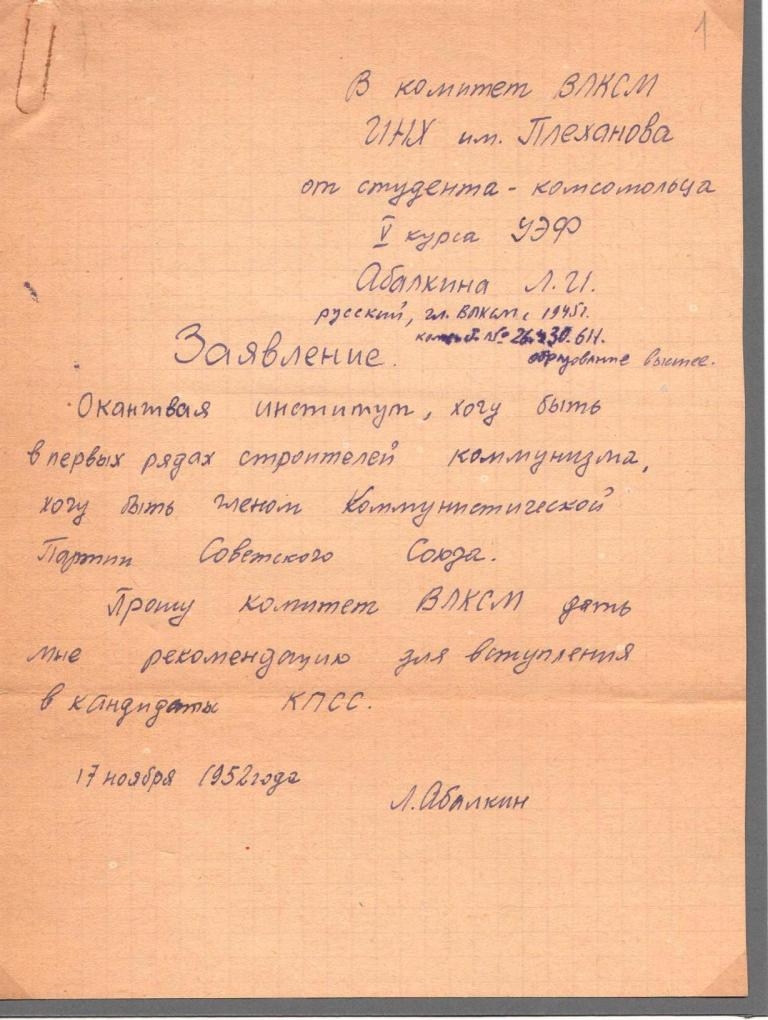 1
В комитет ВЛКСМ
ИНХ им. Плеханова
от студента - комсомольца
V курса УЭФ
Абалкина Л.И.
русский, чл. ВЛКСМ с 1945г.
Заявление.
образование высшее.
Оканчивая институт, хочу быть
в первых рядах строителей коммунизма,
хочу быть членом Коммунистической
Партии Советского Союза.
Прошу комитет ВЛКСМ дать
мне рекомендацию для вступления
в кандидаты КПСС.
17 ноября 1952 года
Л. Абалкин